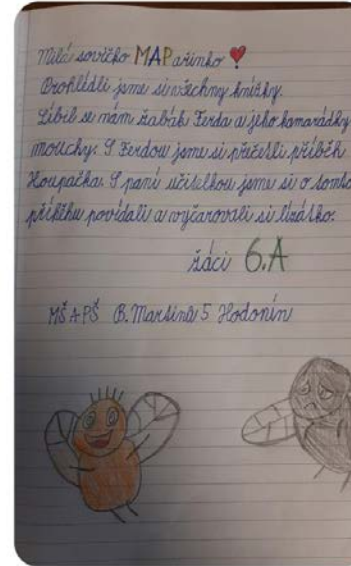 Milá sovičko MAPařinko
Prohlédli jsme si všechny knížky.
Líbil se nám žabák Ferda a jeho kamarádky
mouchy. S Ferdou jsme si přečetli příběh
Houpačka. S paní učitelkou jsme si o tomto
příběhu povídali a vyčarovali si lízátko.
žáci 6.A
MŠ A PŠ B. Martinů 5 Hodonín